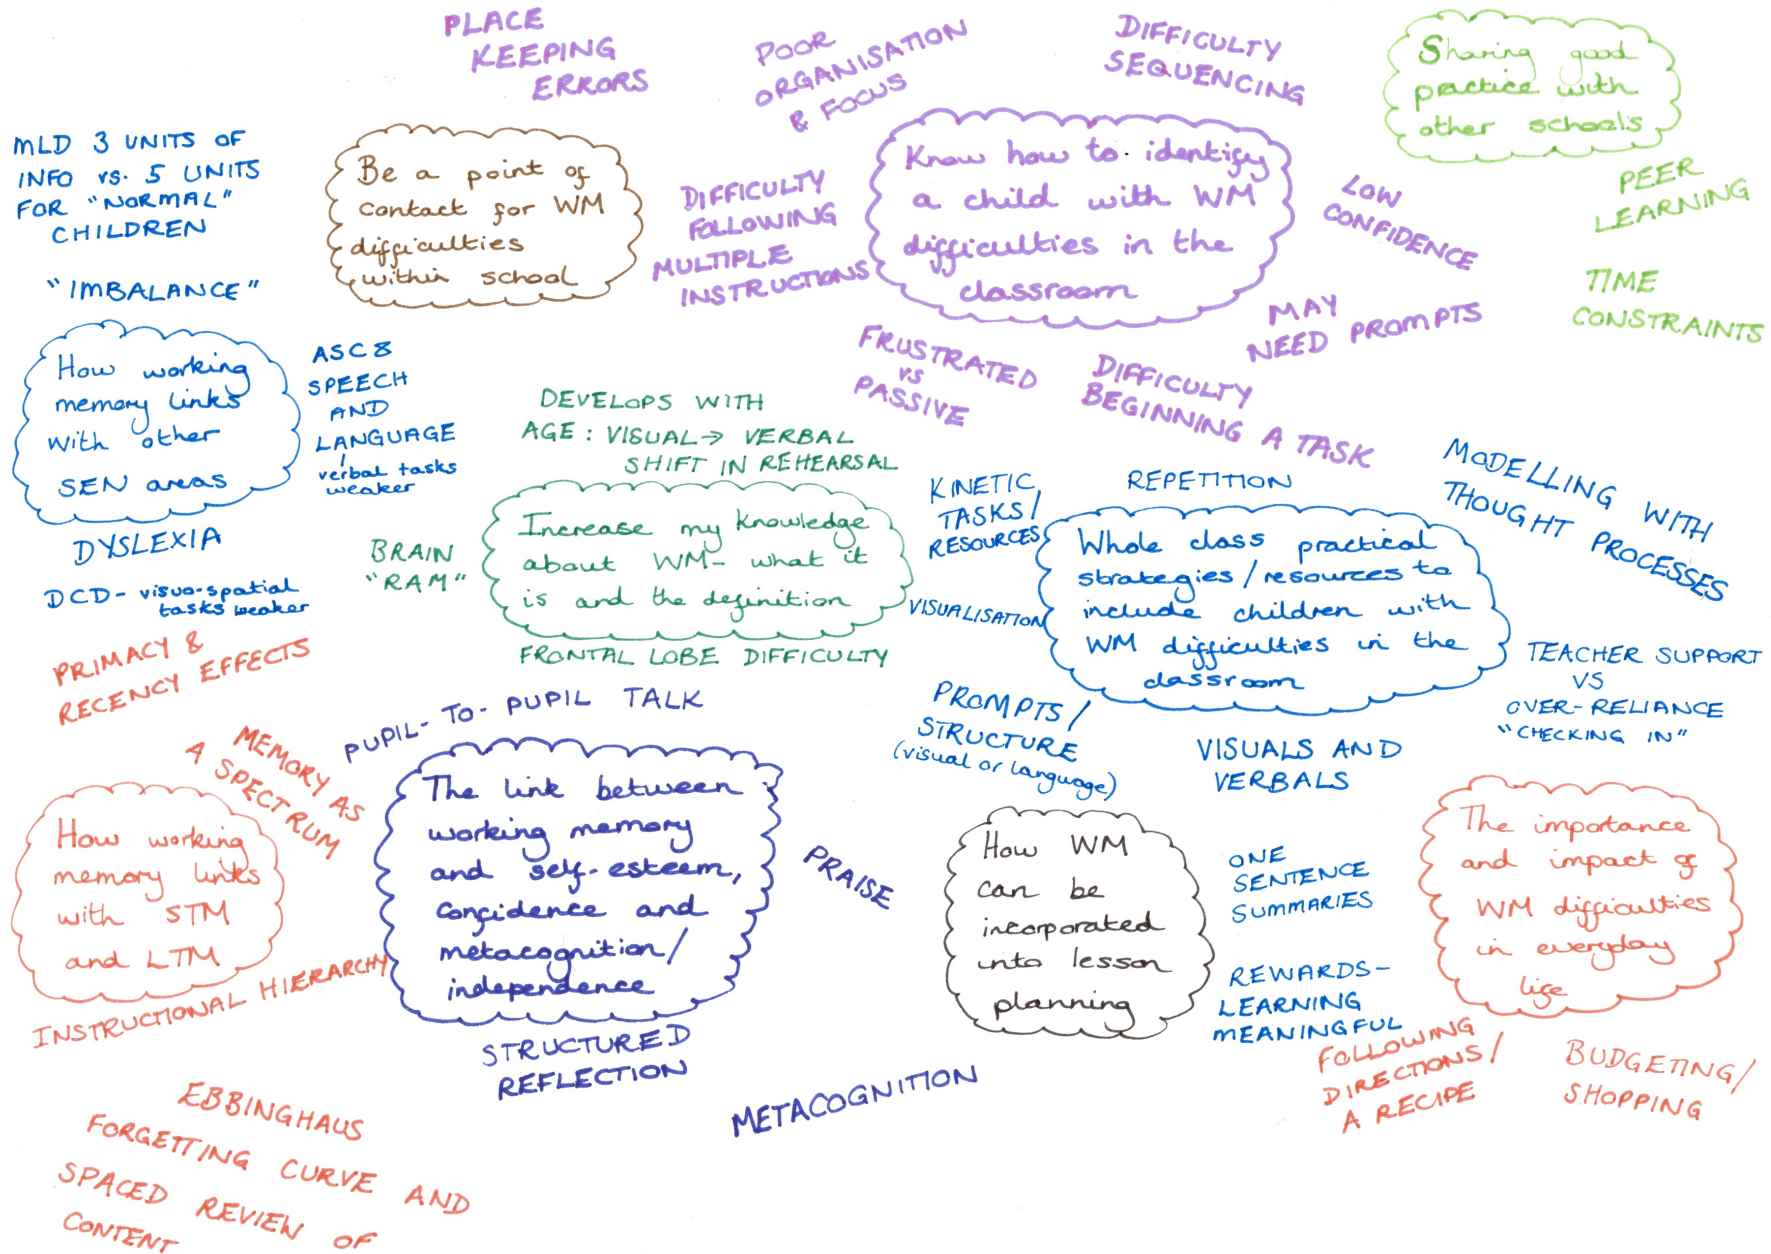 PLACE
KEEPING
ERRORS
POOR
ORGANISATION
& FOCUS
DIFFICULTY
SEQUENCING
Sharing good
practice with
other schools
MLD 3 UNITS OF
INFO vs. 5 UNITS
FOR "NORMAL"
CHILDREN
"IMBALANCE"
Be a point of
contact for WM
difficulties
within school
DIFFICULTY
FOLLOWING
MULTIPLE
INSTRUCTIONS
Know how to identify
a child with WM
difficulties in the
classroom
LOW
CONFIDENCE
PEER
LEARNING
TIME
CONSTRAINTS
MAY
NEED PROMPTS
FRUSTRATED
vs
PASSIVE
DIFFICULTY
BEGINNING A TASK
How working
memory links
with other
SEN areas
ASC &
SPEECH
AND
LANGUAGE
verbal tasks
weaker
DYSLEXIA
DCD - visuo-spatial
tasks weaker
DEVELOPS WITH
AGE: VISUAL → VERBAL
SHIFT IN REHEARSAL
BRAIN
"RAM"
Increase my knowledge
about WM - what it
is and the definition
FRONTAL LOBE DIFFICULTY
KINETIC
TASKS/
RESOURCES
REPETITION
MODELLING WITH
THOUGHT PROCESSES
VISUALISATION
Whole class practical
strategies/resources to
include children with
WM difficulties in the
classroom
TEACHER SUPPORT
VS
OVER-RELIANCE
"CHECKING IN"
PROMPTS/
STRUCTURE
(visual or language)
VISUALS AND
VERBALS
PRIMACY &
RECENCY EFFECTS
MEMORY AS
A SPECTRUM
How working
memory links
with STM
and LTM
INSTRUCTIONAL HIERARCHY
EBBINGHAUS
FORGETTING CURVE AND
SPACED REVIEW OF
CONTENT
PUPIL-TO-PUPIL TALK
The link between
working memory
and self-esteem,
confidence and
metacognition/
independence
PRAISE
STRUCTURED
REFLECTION
METACOGNITION
How WM
can be
incorporated
into lesson
planning
ONE
SENTENCE
SUMMARIES
REWARDS-
LEARNING
MEANINGFUL
The importance
and impact of
WM difficulties
in everyday
life
FOLLOWING
DIRECTIONS/
A RECIPE
BUDGETING/
SHOPPING